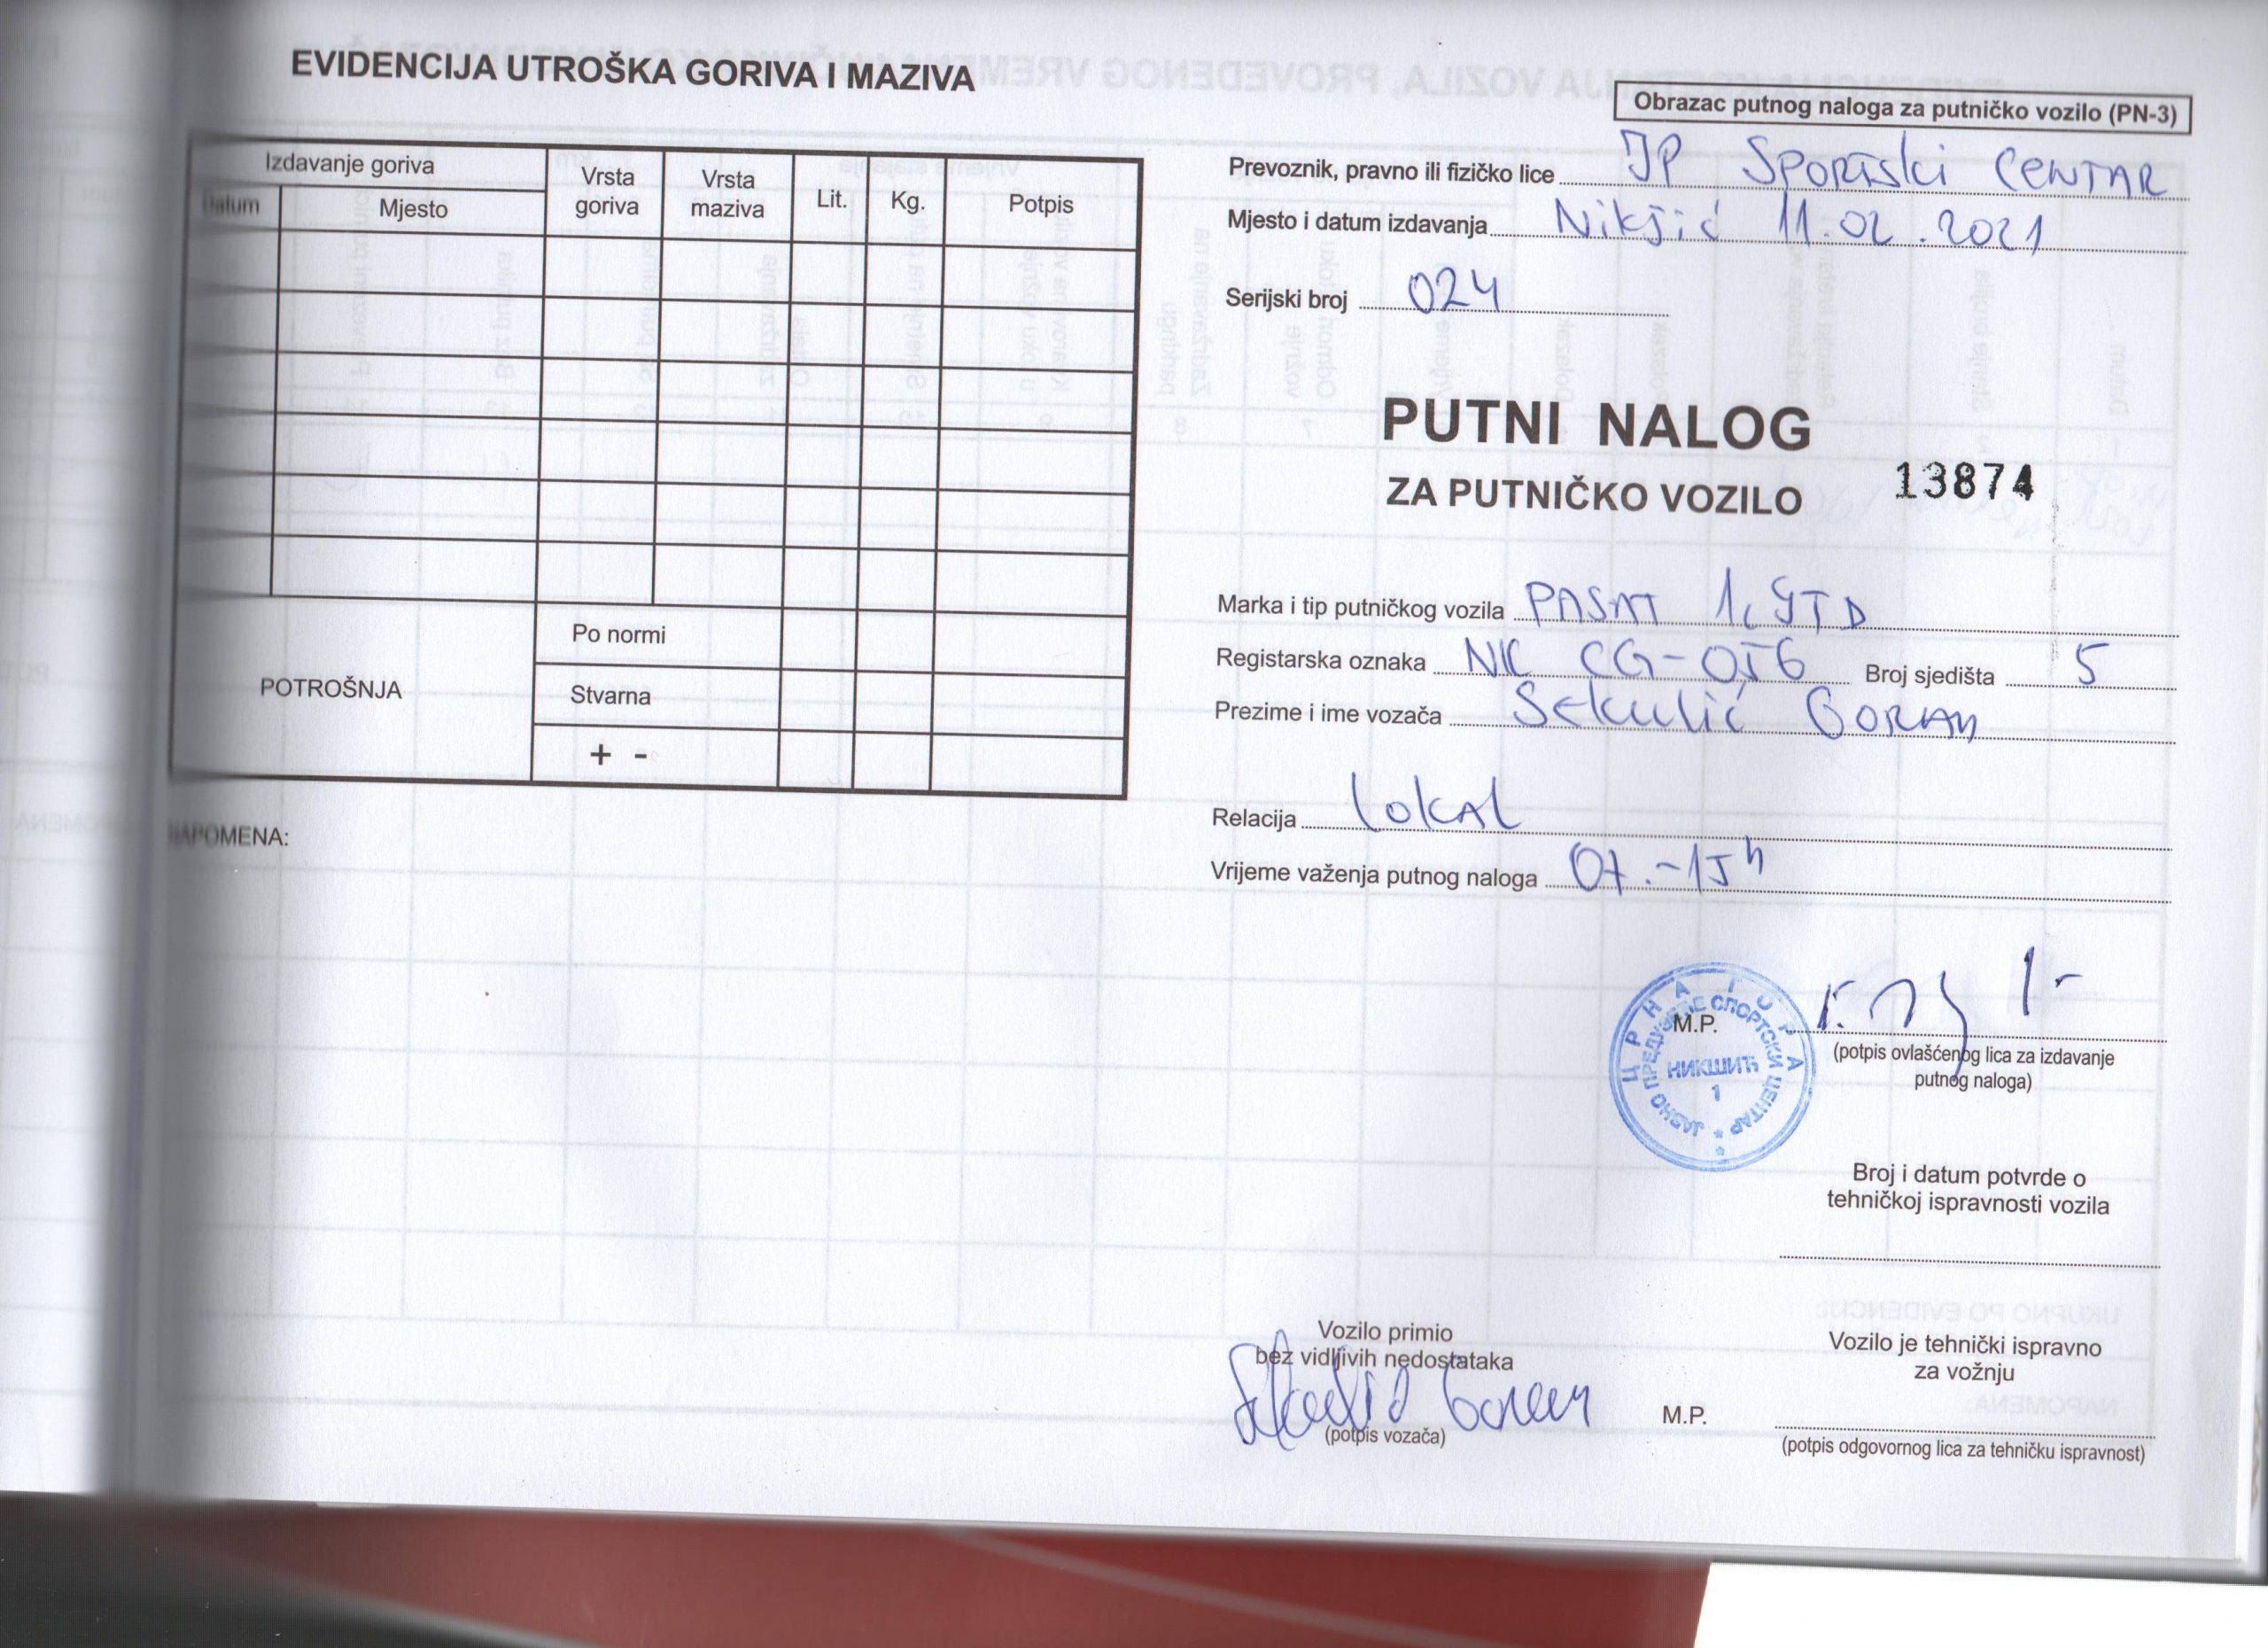 EVIDENCIJA UTROŠKA GORIVA I MAZIVA
Izdavanje goriva
Datum
Mjesto
Vrsta goriva
Vrsta maziva
Lit.
Kg.
Potpis
POTROŠNJA
Po normi
Stvarna
+ -
NAPOMENA:
Obrazac putnog naloga za putničko vozilo (PN-3)
Prevoznik, pravno ili fizičko lice JP Sportski CENTAR
Mjesto i datum izdavanja Nikšić 11.02.2021
Serijski broj 024
PUTNI NALOG
ZA PUTNIČKO VOZILO 13874
Marka i tip putničkog vozila PASAT 1,9TD
Registarska oznaka NK CG-056 Broj sjedišta 5
Prezime i ime vozača Sekulić GORAN
Relacija LOKAL
Vrijeme važenja putnog naloga 07.-15h
М.P.
ЦРНА ГОРА
ЈАВНО ПРЕДУЗЕЋЕ СПОРТСКИ ЦЕНТАР
НИКШИЋ
1
(potpis ovlašćenog lica za izdavanje
putnog naloga)
Broj i datum potvrde o
tehničkoj ispravnosti vozila
Vozilo primio
bez vidljivih nedostataka
Sekulić Goran
(potpis vozača)
M.P.
Vozilo je tehnički ispravno
za vožnju
(potpis odgovornog lica za tehničku ispravnost)